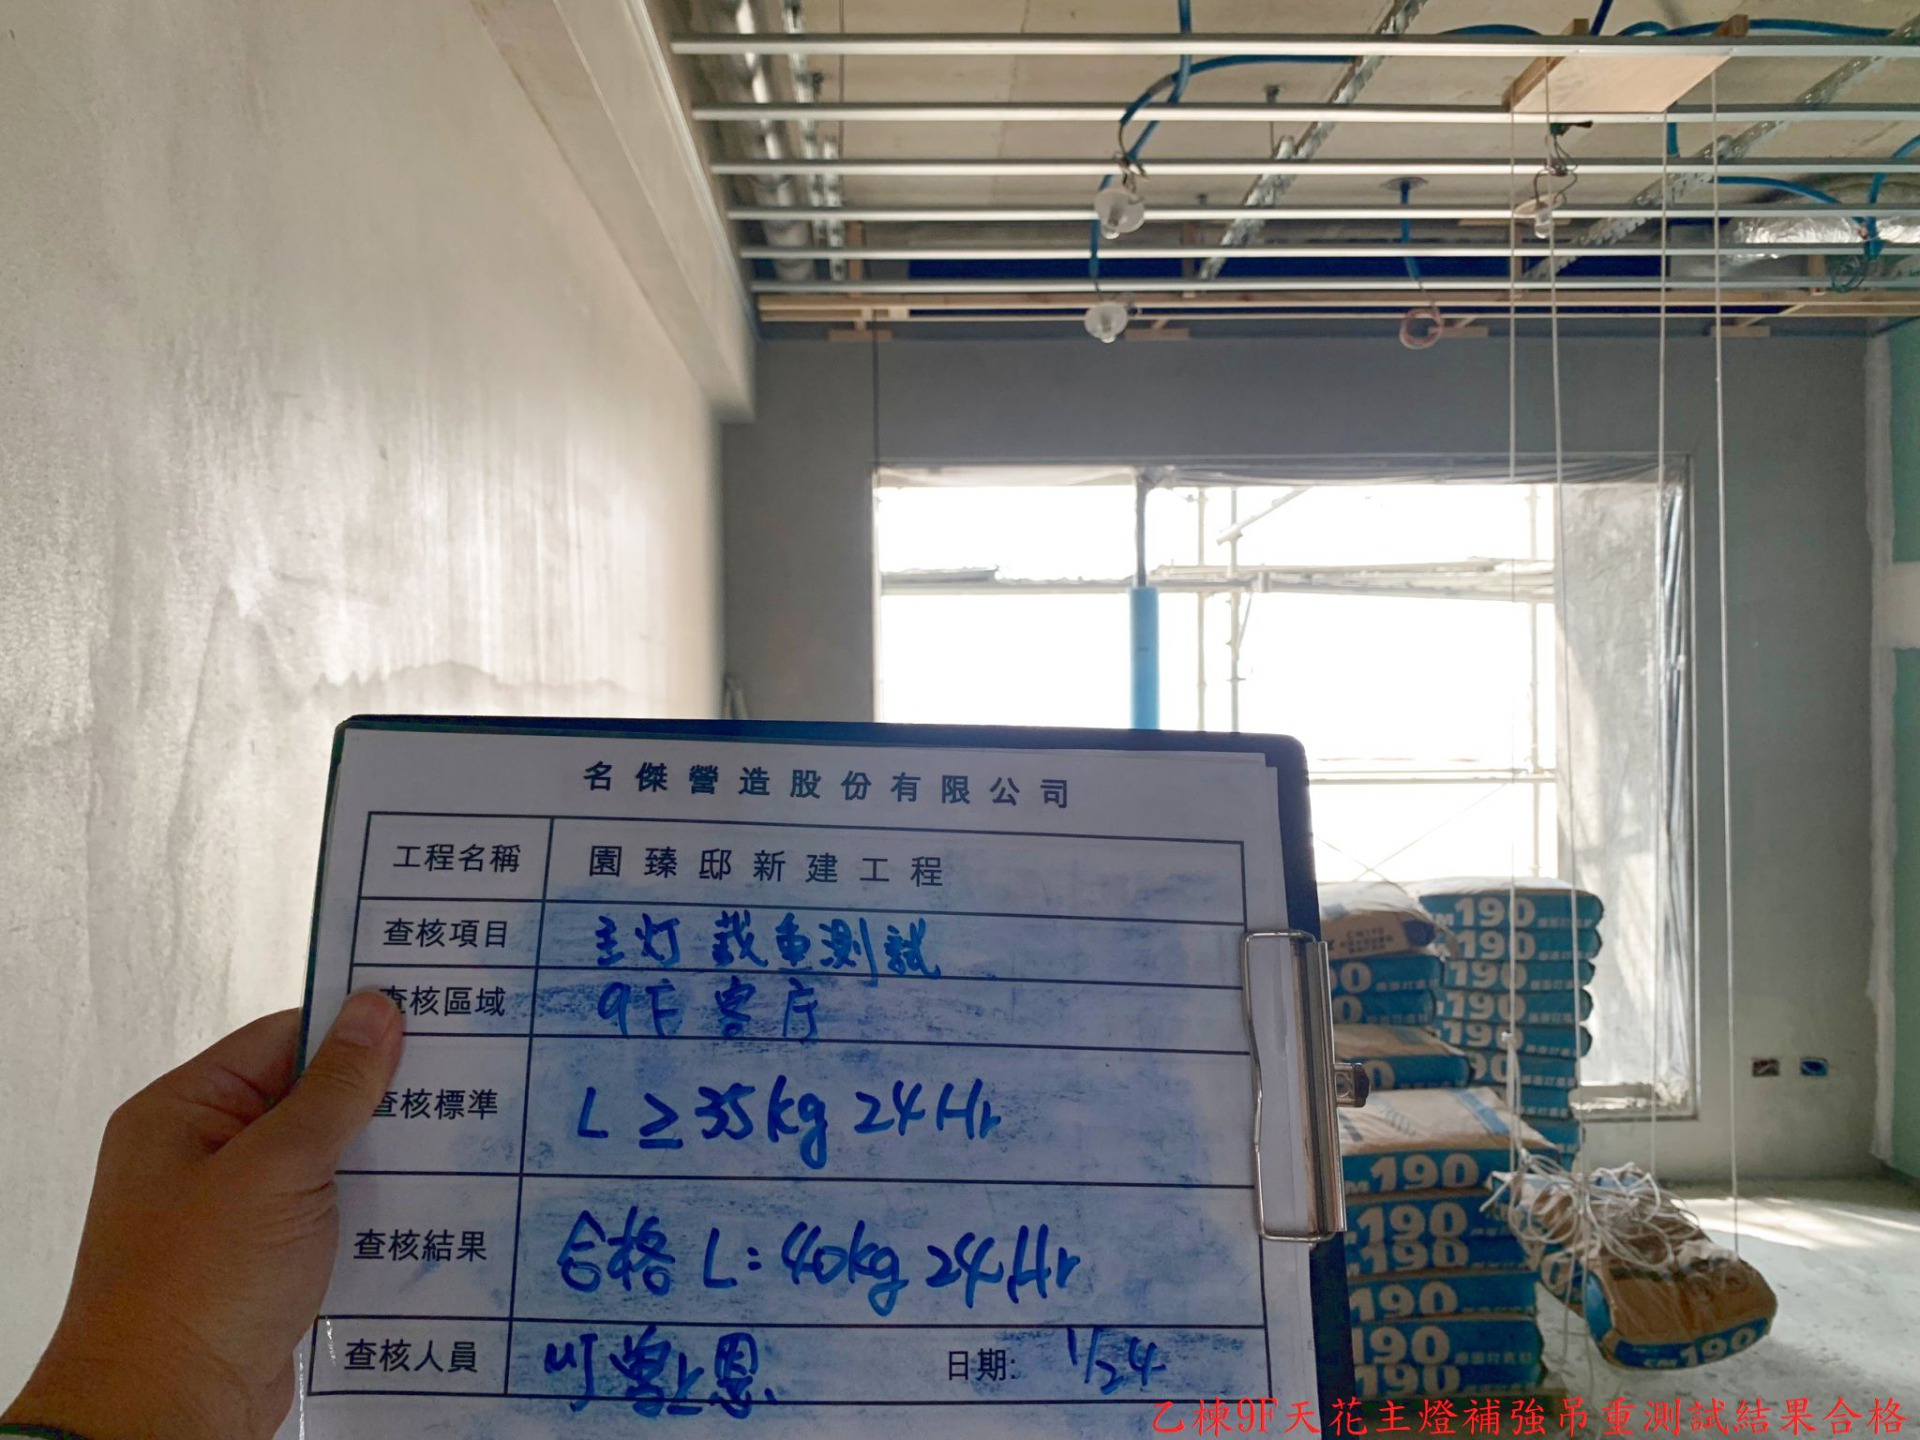 名傑營造股份有限公司
工程名稱 園臻邸新建工程
查核項目 主灯載重測試
查核區域 9F客庁
查核標準 L ≥ 35kg 24Hr
查核結果 合格 L: 40kg 24Hr
查核人員 日期: 1/24
190
190
190
190
190
190
190
190
190
190
190
190
190
乙棟9F天花主燈補強吊重測試結果合格